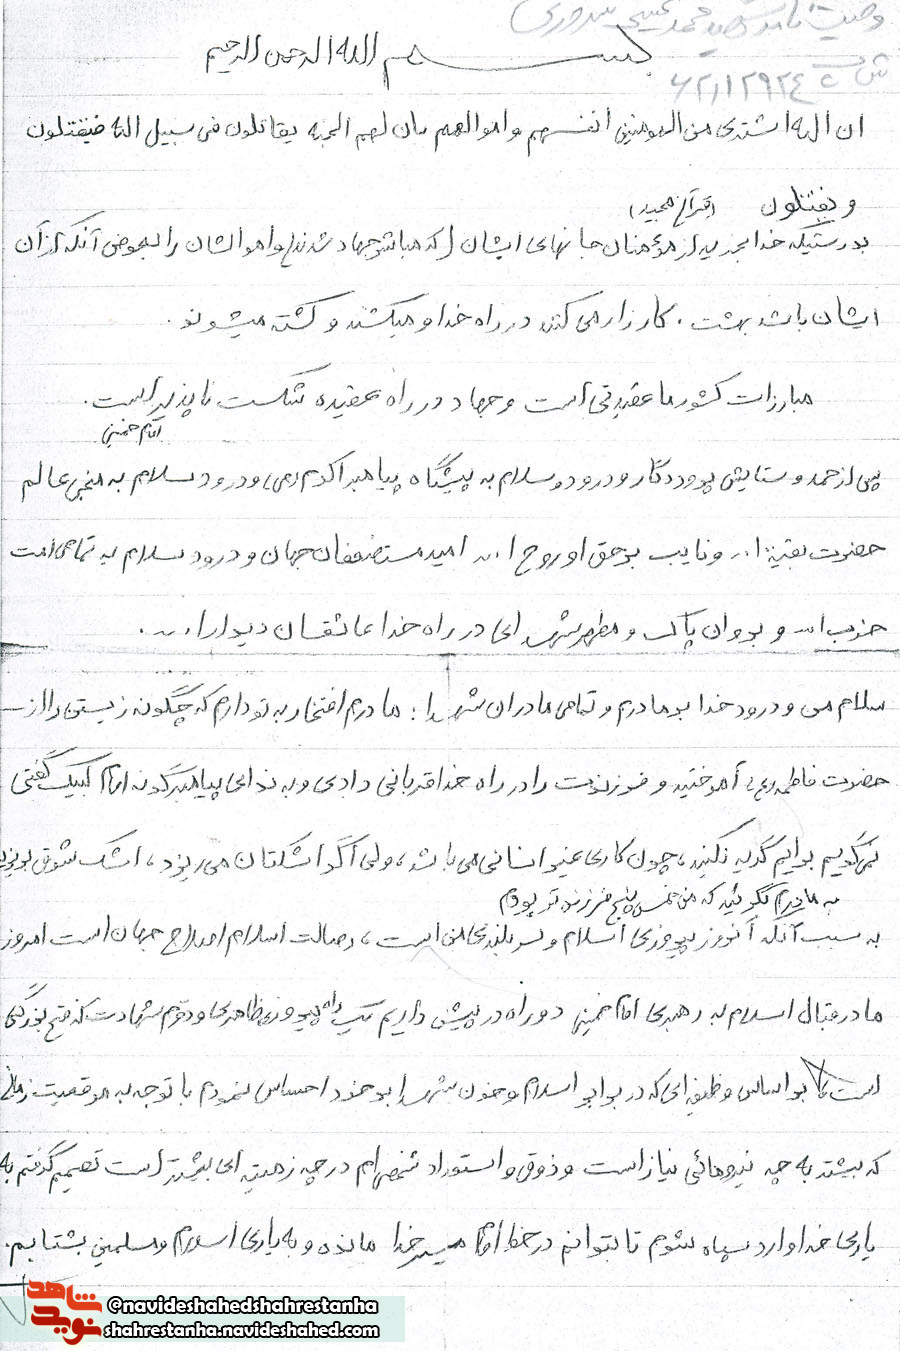 وصیت نامه شهید محمد یحیی سروری
ش پ ۶۲۱۲۹۲۴
بسم الله الرحمن الرحیم
ان الله اشتری من المومنین انفسهم و اموالهم بان لهم الجنه یقاتلون فی سبیل الله فیقتلون
و یقتلون (قرآن مجید)
بدرستیکه خدا بخرید از مؤمنان جانهای ایشان را که مباشر جهاد شدند و اموالشان را بعوض آنکه از آن
ایشان باشد بهشت. کارزار می کنند در راه خدا و میکشند و کشته میشوند.
مبارزات کشور ما عقیدتی است و جهاد در راه عقیده شکست ناپذیر است.
امام خمینی
پس از حمد و ستایش پروردگار و درود و سلام به پیشگاه پیامبر اکرم (ص) و درود و سلام به منجی عالم
حضرت بقیة ا... و نایب برحق او روح ا... امید مستضعفان جهان و درود و سلام به تمامی امت
حزب ا... و بروان پاک و مطهر شهدای در راه خدا عاشقان دیدار ا...
سلام من و درود خدا بر مادرم و تمامی مادران شهدا: مادرم افتخار به تو دارم که چگونه زیستن را از
حضرت فاطمه (ع) آموختید و فرزندت را در راه خدا قربانی دادی و به ندای پیامبرگونه امام لبیک گفتی
نمیگویم برایم گریه نکنید، چون کاری غیر انسانی می باشد، ولی اگر اشکتان می ریزد، اشک شوق بریزید
به مادرم بگوئید که من خمس پنج فرزند تو بودم
به سبب آنکه آنروز پیروزی اسلام و سربلندی من است، رسالت اسلام اصلاح جهان است امروز
ما در قبال اسلام به رهبری امام خمینی دو راه در پیش داریم یک راه پیروزی ظاهری و دوم شهادت که فتح بزرگی
است بر اساس وظیفه ای که در برابر اسلام و خون شهدا بر خود احساس نمودم با توجه به موقعیت زمانی
که بیشتر به چه نیروهائی نیاز است و ذوق و استعداد شخصی ام در چه زمینه ای بیشتر است تصمیم گرفتم به
یاری خدا وارد سپاه شوم تا بتوانم در خط امام مسیر خدا مانده و به یاری اسلام و مسلمین بشتابم.
شاهد
نوید
@navideshahedshahrestanha
shahrestanha.navideshahed.com